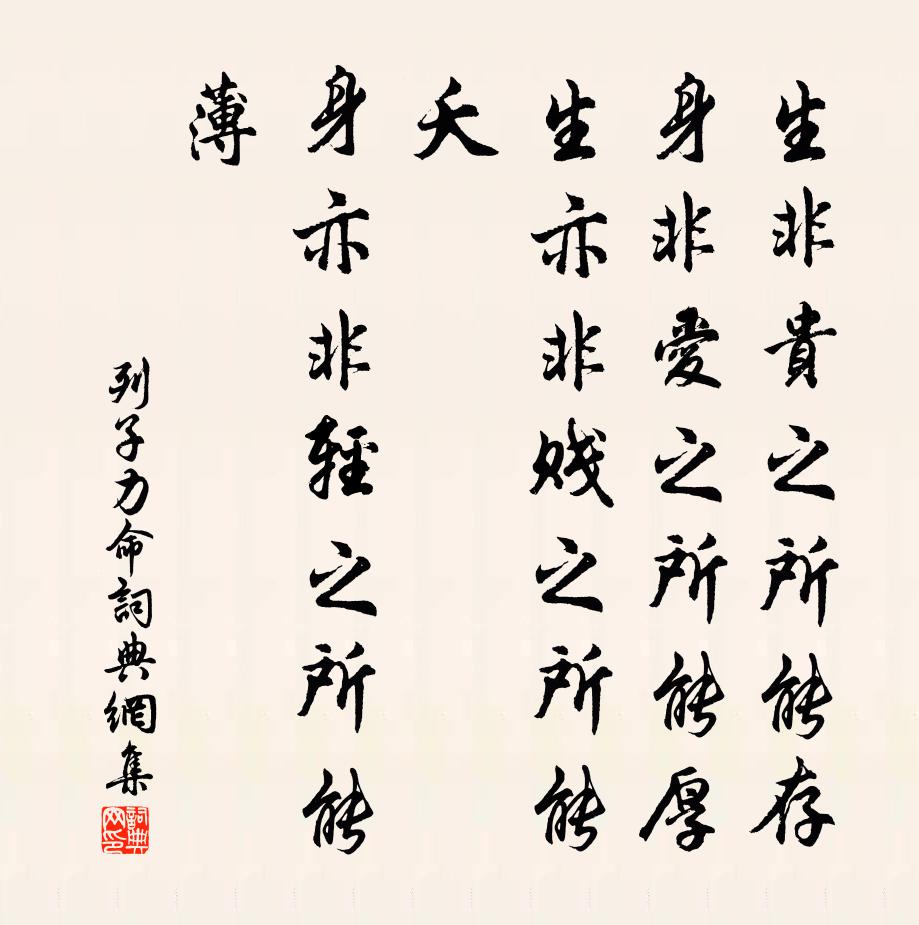 生非貴之所能存
身非愛之所能厚
生亦非賤之所能
夭
身亦非輕之所能
薄
列子力命詞典網集
詞典网印